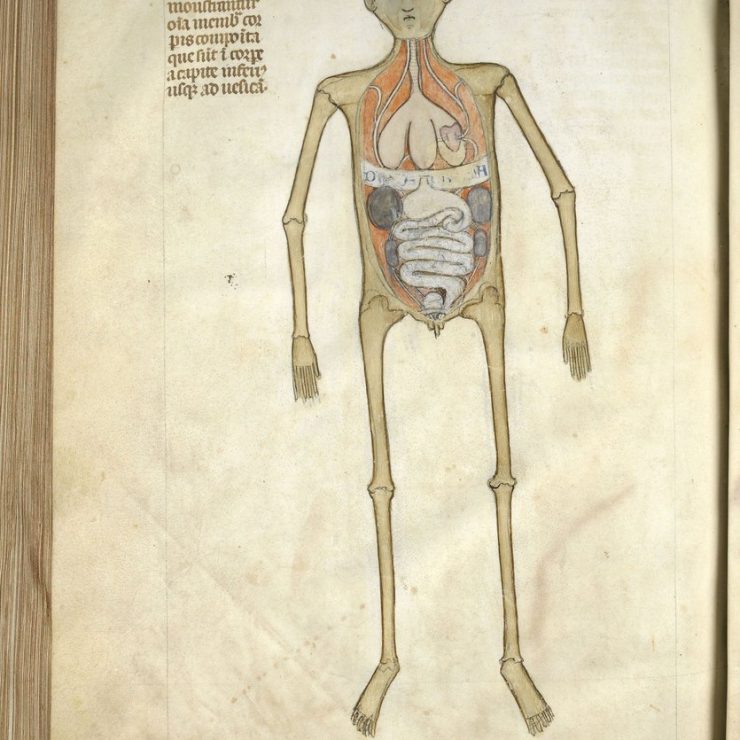 monstrantur
oīa membͣ cor
ꝑis compoīta
que sūt ī corꝑe
a capite inferiꝰ
usqꝫ ad uesicā.